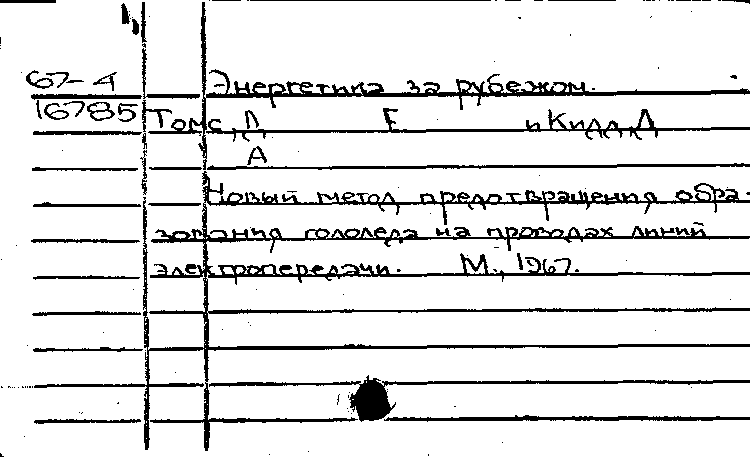 67-4 Энергетика за рубежом.
16785 Томс, Л, Е. и Кидд, Д
А
Новый метод предотвращения обра-
зования гололеда на проводах линий
электропередачи. М., 1967.